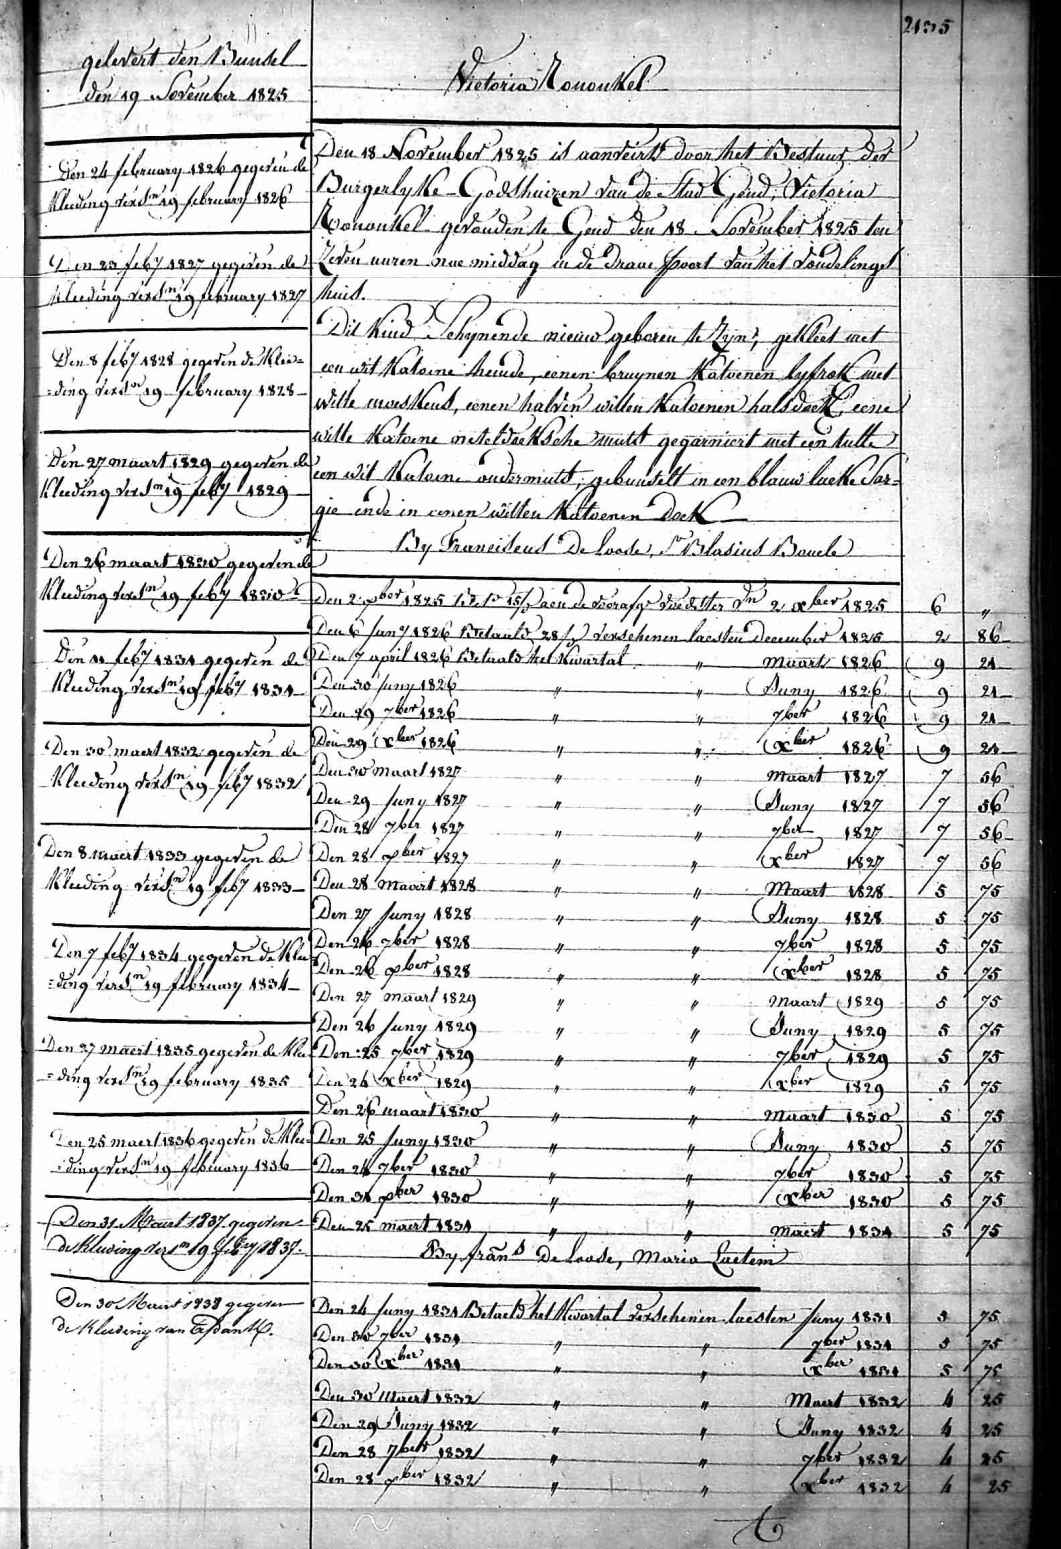 2135
gelevert den Bundel
den 19 November 1825
Den 24 february 1826 gegeven de
Kleeding versn 19 february 1826
Den 23 feby 1827 gegeven de
Kleeding versn 19 february 1827
Den 8 feby 1828 gegeven de Klee=
=ding versn 19 february 1828
Den 27 maart 1829 gegeven de
Kleeding versn 19 feby 1829
Den 26 maart 1830 gegeven de
Kleeding versn 19 feby 1830
Den 11 feby 1831 gegeven de
Kleeding versn 19 feby 1831
Den 30 maert 1832 gegeven de
Kleeding versn 19 feby 1832
Den 8 maert 1833 gegeven de
Kleeding versn 19 feby 1833
Den 7 feby 1834 gegeven de Klee
=ding versn 19 february 1834
Den 27 maert 1835 gegeven de Klee
=ding versn 19 february 1835
Den 25 maert 1836 gegeven de Klee
=ding versn 19 february 1836
Den 31 Maart 1837 gegeven
de Kleeding versn 19 febry 1837.
Den 30 Maart 1838 gegeven
de Kleeding van
Victoria Rononkel
Den 18 November 1825 is aanveird door het Bestuur der
Burgerlyke Godshuizen van de Stad Gend, Victoria
Rononkel gevonden te Gend den 18 November 1825 ten
Zeven uuren nae middag in de Draae Poort van het vondelinge
huis.
Dit Kind Schynende nieuw geboren te Zyn, gekleet met
een wit Katoene hemde, eenen bruynen Katoenen lyfrok met
witte mouskens, eenen halven witten Katoenen halsdoek, eene
witte Katoene neteldoeksche muts gegarniert met een tulle
een wit Katoene ondermuts, gebundelt in een blauw laeke Sar=
gie ende in eenen witten Katoenen Doek
By Franciscus De Loose, St Blasius Boucle
Den 2 xber 1825 aen de voorafge voedster Dn 2 xber 1825 6 "
Den 6 Juny 1826 Betaald 28/ verschenen laesten December 1825 2 86
Den 7 april 1826 Betaald het Kwartal " Maart 1826 9 21
Den 30 Juny 1826 " " Juny 1826 9 21
Den 29 7ber 1826 " " 7ber 1826 9 21
Den 29 xber 1826 " " xber 1826 9 21
Den 30 maart 1827 " " maart 1827 7 56
Den 29 Juny 1827 " " Juny 1827 7 56
Den 28 7ber 1827 " " 7ber 1827 7 56
Den 28 xber 1827 " " xber 1827 7 56
Den 28 Maart 1828 " " Maart 1828 5 75
Den 27 Juny 1828 " " Juny 1828 5 75
Den 26 7ber 1828 " " 7ber 1828 5 75
Den 26 xber 1828 " " xber 1828 5 75
Den 27 maart 1829 " " Maart 1829 5 75
Den 26 Juny 1829 " " Juny 1829 5 75
Den 25 7ber 1829 " " 7ber 1829 5 75
Den 24 xber 1829 " " xber 1829 5 75
Den 26 maart 1830 " " Maart 1830 5 75
Den 25 Juny 1830 " " Juny 1830 5 75
Den 24 7ber 1830 " " 7ber 1830 5 75
Den 31 xber 1830 " " xber 1830 5 75
Den 25 maert 1831 " " maert 1831 5 75
By frans De Loose, Maria Laetem
Den 24 Juny 1831 Betaeld het Kwartal verschenen laesten Juny 1831 5 75
Den 30 7ber 1831 " " 7ber 1831 5 75
Den 30 xber 1831 " " xber 1831 5 75
Den 30 Maert 1832 " " Maert 1832 4 25
Den 29 Juny 1832 " " Juny 1832 4 25
Den 28 7ber 1832 " " 7ber 1832 4 25
Den 28 xber 1832 " " xber 1832 4 25